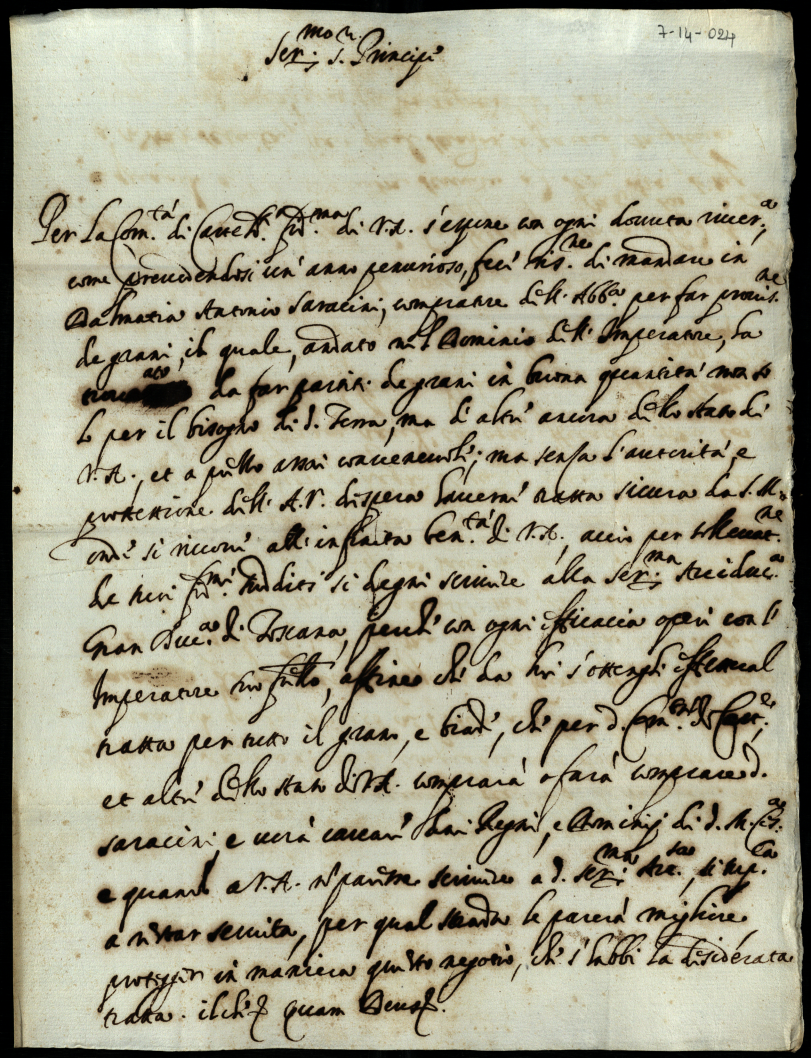 7-14-024
Ser.mo s. Principe
Per la Com.tà di Castel fid.ma di V.A. s'espone con ogni douuta riuer.a
come preuedendosi un'anno penurioso, fece ris.ne di mandare in
Dalmatia Antonio Saracini, compratore dell'Abb.a per far prouis.ne
de grani, il quale, andato nel Dominio dell'Imperatore, ha
trouato da far partiti de grani in buona quantità non so
lo per il bisogno di d. Terra, ma d'altri ancora dello stato di
V.A., et a prezzo assai conueneuole; ma senza l'autorità, e
protettione dell'A.V. dispera hauerne tratta sicura da S.M.
onde si ricorre all'infinita ben.tà di V.A., acciò per solleuat.ne
de suoi fid.mi sudditi si degni scriuere alla Ser.ma Arciduc.a
Gran Duc.a di Toscana, perche con ogni efficacia operi con l'
Imperatore suo fratello, affine che da lui s'ottenghi
tratta per tutto il grano, e biade, che per d. Com.tà di Castel.
et altri dello stato di V.A. comprarà o farà comprare d.
Saracini, e uerrà caricare luoi Regni, e Dominij di S.M. Ces.a
e quando a V.A. non paresse scriuere a d. Ser.ma Arc., si sup.ca
a restar seruita, per qual strada le parerà migliore
proteger in maniera questo negotio, che s'habbi la desiderata
tratta. il che quam Deus.